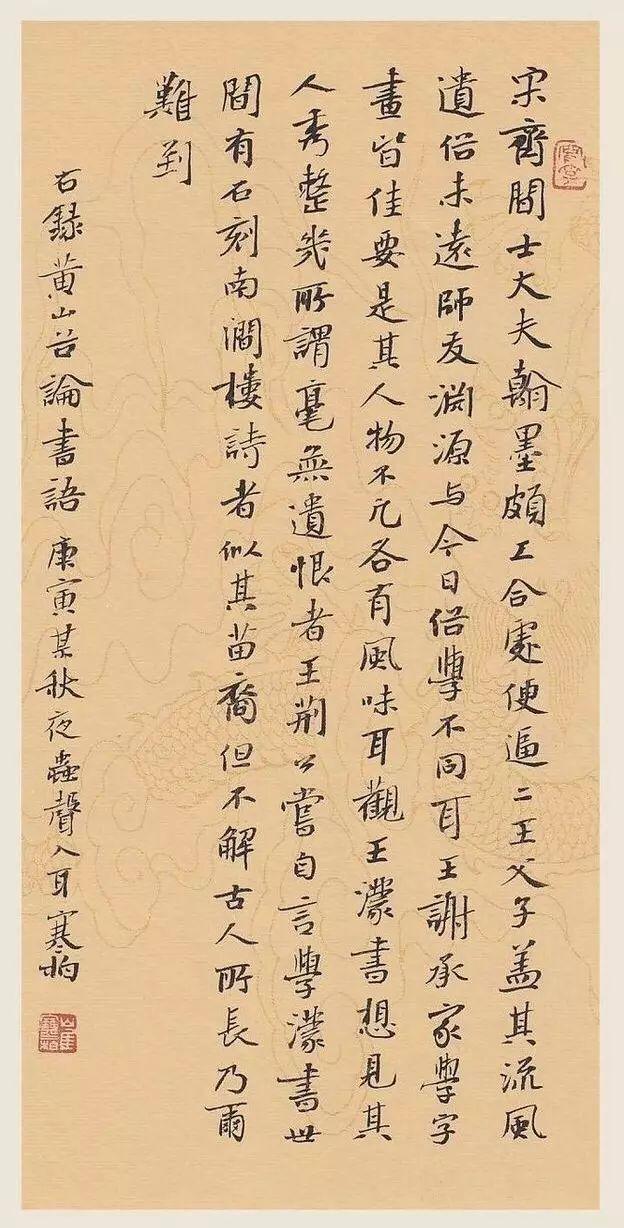 宋齊間士大夫翰墨頗工合處便逼二王父子蓋其流風
遺俗未遠師友淵源与今日俗學不同耳王謝承家學字
畫皆佳要是其人物不凡各有風味耳觀王濛書想見其
人秀整幾所謂毫無遺恨者王荆公嘗自言學濛書世
間有石刻南澗樓詩者似其苗裔但不解古人所長乃爾
難到
右録黄山谷論書語庚寅某秋夜蟲聲入耳寒柏